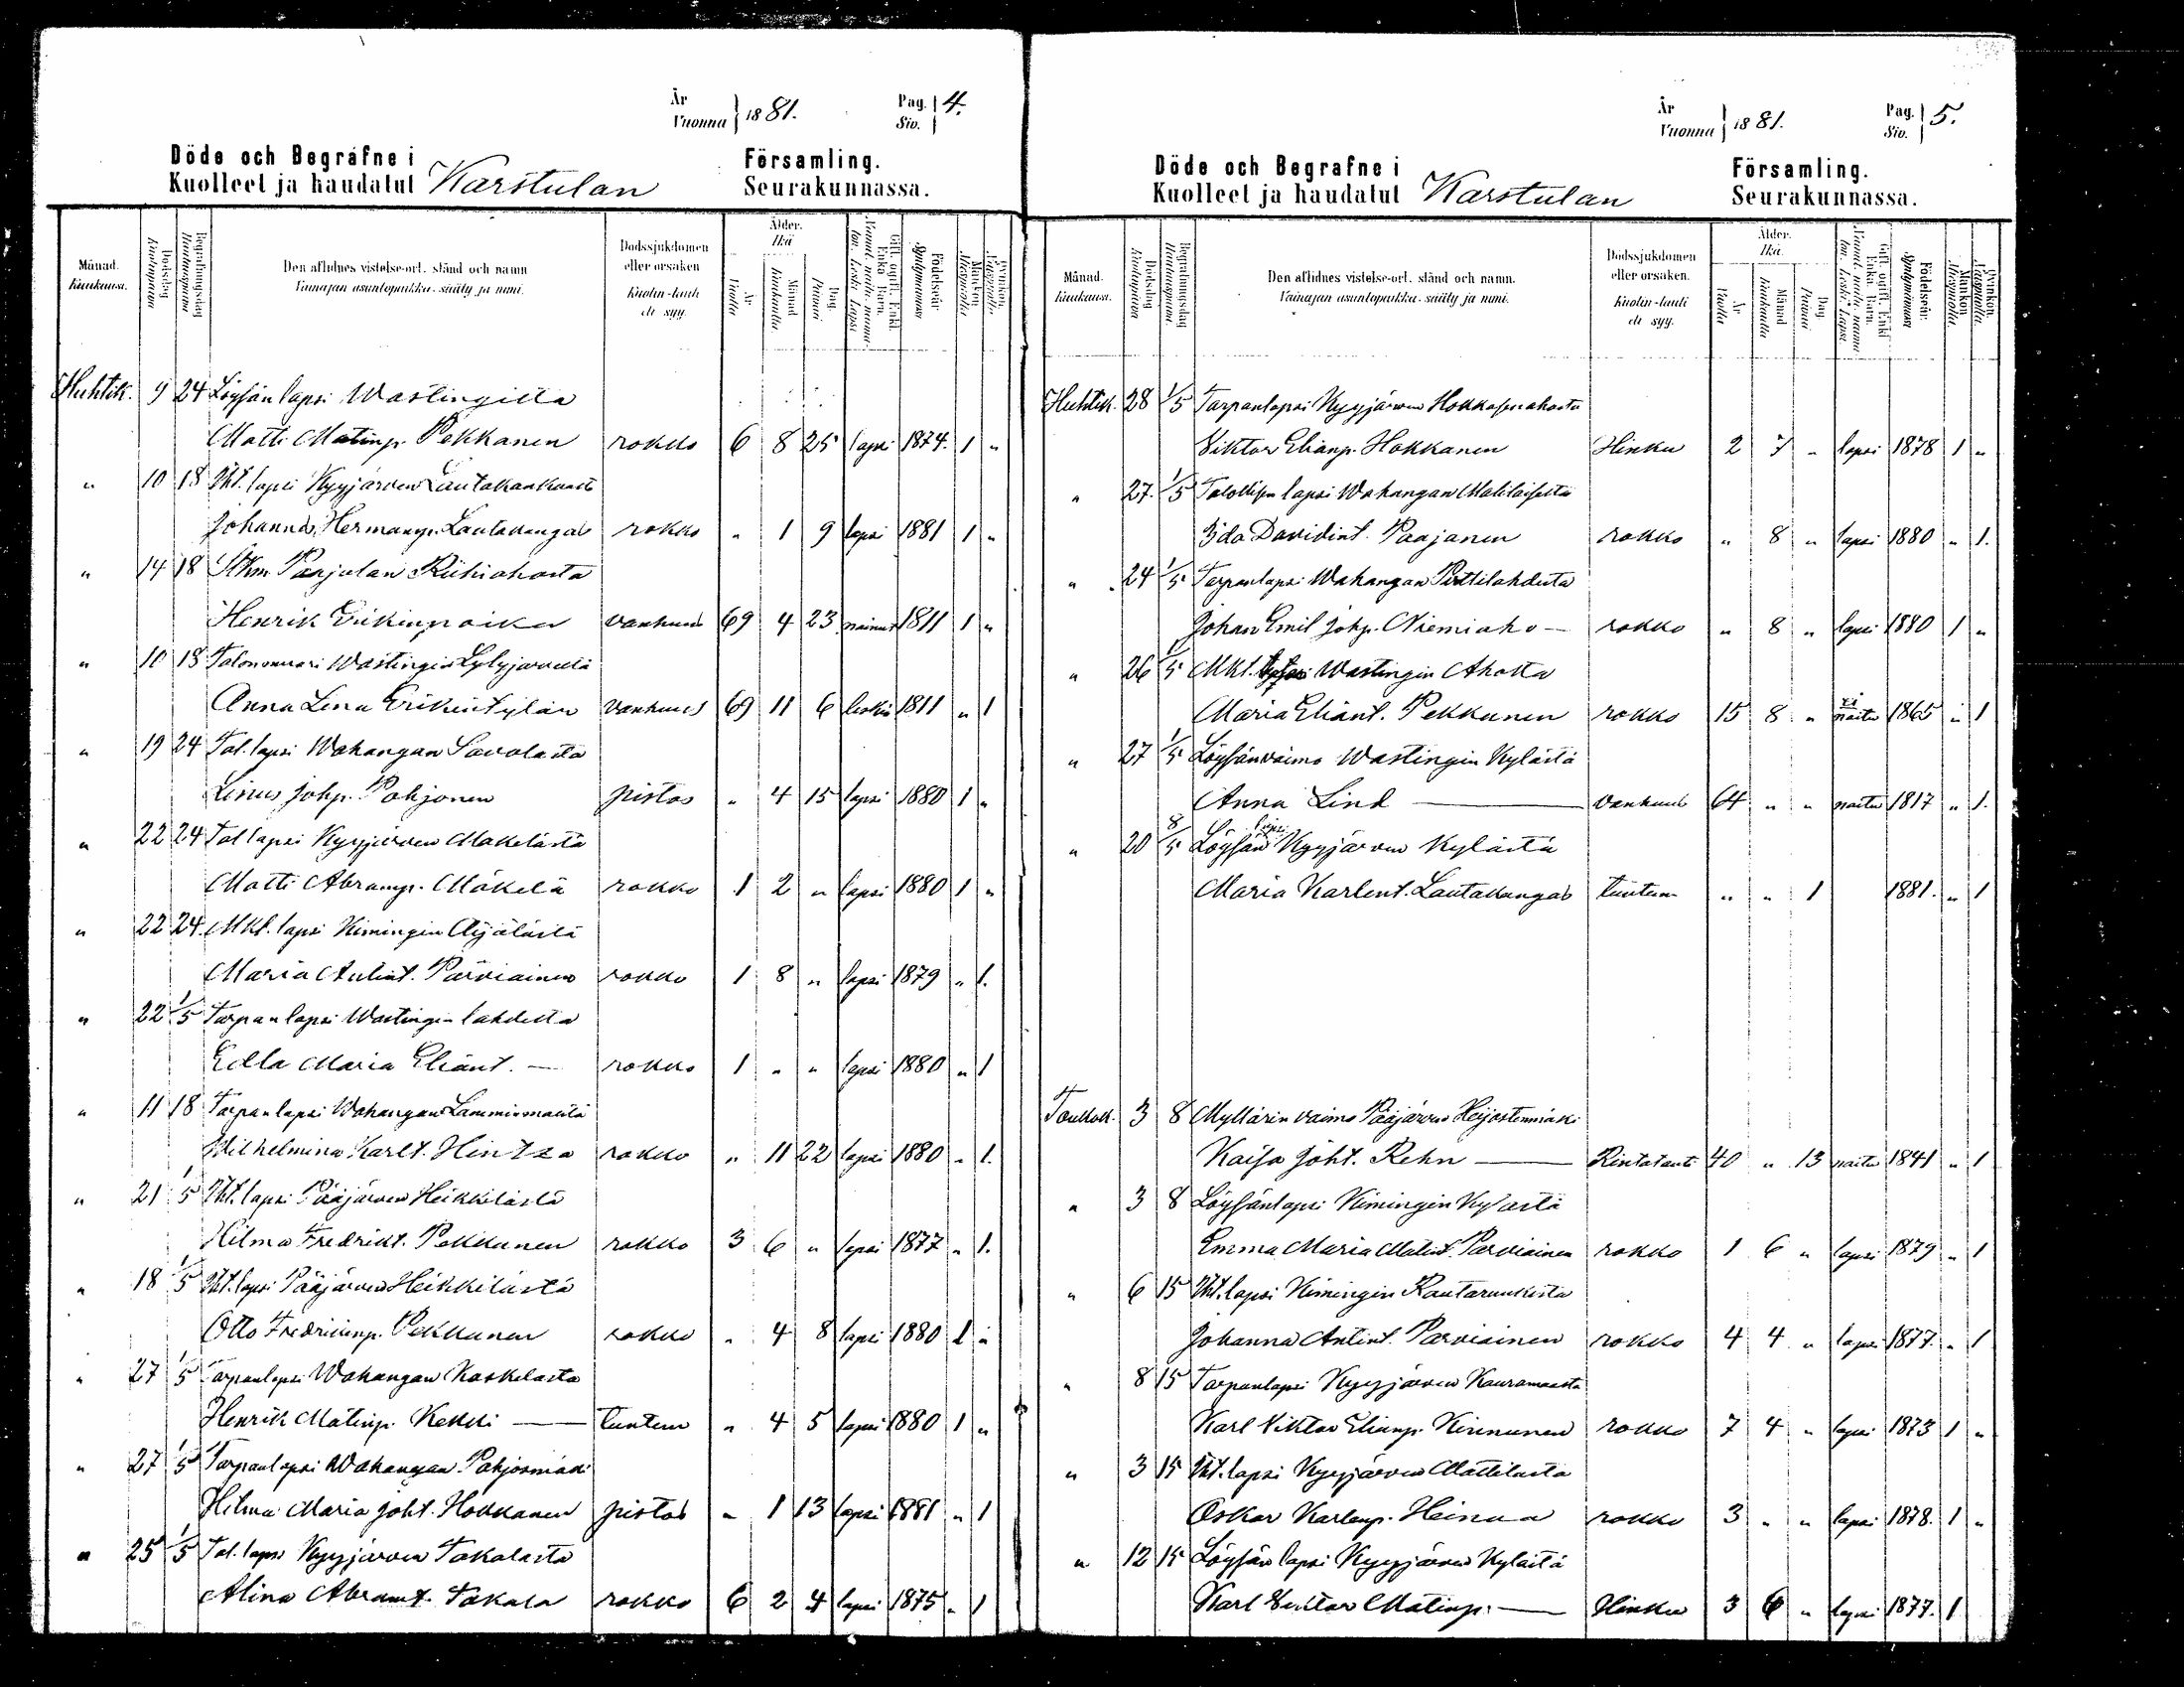 År
Vuonna 1881.
Pag.
Siv. 4.
Döde och Begrafne i Församling.
Kuolleet ja haudatut Karstulan Seurakunnassa.
Månad. Kuukausi.
Dödsdag Kuolinpäivä
Begrafningsdag Hautauspäivä
Den aflidnes vistelse-ort, stånd och namn
Vainajan asuntopaikka, sääty ja nimi.
Dödssjukdomen eller orsaken
Kuolin-tauti eli syy.
Ålder. Ikä
År Vuotta
Månad Kuukautta
Dag Päivää
Gift, ogift, Enkl. Enka, Barn.
Födelseår Syntymävuosi
Mankön Miespuolta
Qvinkön Vaimopuolta
Huhtik. 9 24 Löysän lapsi Wastingilta
Matti Matinp. Pekkanen rokko 6 8 25 lapsi 1874. 1 "
" 10 18 Tht. lapsi Kyyjärven Lautakankaalta
Johannes Hermanp. Lautakangas rokko " 1 9 lapsi 1881 1 "
" 14 18 Itkm Parjulan Riihiahosta
Henrik Erikinpoika vanhuus 69 4 23 nainut 1811 1 "
" 10 18 Talonmuori Wastingin Lylyjärveltä
Anna Lena Erikintytär vanhuus 69 11 6 leski 1811 " 1
" 19 24 Tal. lapsi Wahangan Savolasta
Linus Johp. Pohjonen pistos " 4 15 lapsi 1880 1 "
" 22 24 Tal lapsi Kyyjärven Mäkelästä
Matti Abramp. Mäkelä rokko 1 2 " lapsi 1880 1 "
" 22 24. Mkl. lapsi Kimingin Äijälästä
Maria Antint. Parviainen rokko 1 8 " lapsi 1879 " 1.
" 22 1/5 Torpan lapsi Wastingin lahdelta
Edla Maria Eliant. — rokko 1 " " lapsi 1880 " 1
" 11 18 Torpan lapsi Wahangan Lamminmäeltä
Wilhelmina Karlt. Hintsa rokko " 11 22 lapsi 1880 " 1.
" 21 1/5 Tht. lapsi Pääjärven Heikkilästä
Hilma Fredrikt. Pekkanen rokko 3 6 " lapsi 1877 " 1.
" 18 1/5 Tht. lapsi Pääjärven Heikkilästä
Otto Fredrikinp. Pekkanen rokko " 4 8 lapsi 1880 1 "
" 27 1/5 Torpan lapsi Wahangan Koskelasta
Henrik Matinp. Kekki — tuntem " 4 5 lapsi 1880 1 "
" 27 1/5 Torpan lapsi Wahangan Pohjosmäki
Hilma Maria Joht. Hokkanen pistos " 1 13 lapsi 1881 " 1
" 25 1/5 Tal. lapsi Kyyjärven Takalasta
Alina Abramt. Takala rokko 6 2 4 lapsi 1875 " 1
År
Vuonna 1881.
Pag.
Siv. 5.
Döde och Begrafne i Församling.
Kuolleet ja haudatut Karstulan Seurakunnassa.
Månad. Kuukausi.
Dödsdag Kuolinpäivä
Begrafningsdag Hautauspäivä
Den aflidnes vistelse-ort, stånd och namn.
Vainajan asuntopaikka, sääty ja nimi.
Dödssjukdomen eller orsaken.
Kuolin-tauti eli syy.
Ålder. Ikä.
År Vuotta
Månad Kuukautta
Dag Päivää
Gift, ogift, Enkl Enka, Barn.
Födelseår. Syntymävuosi
Mankön Miespuolta
Qvinkön. Vaimopuolta.
Huhtik. 28 1/5 Torpanlapsi Kyyjärven Hokkasenahosta
Viktor Elianp. Hokkanen Hinku 2 7 " lapsi 1878 1 "
" 27. 1/5 Talollisen lapsi Wahangan Matilaiselta
Ida Davidint. Paajanen rokko " 8 " lapsi 1880 " 1.
" 24 1/5 Torpanlapsi Wahangan Pirttilahdesta
Johan Emil Johp. Niemiaho — rokko " 8 " lapsi 1880 1 "
" 26 1/5 Mkl. Wastingin Aholta
Maria Eliant. Pekkanen rokko 15 8 " ei naitu 1865 " 1
" 27 1/5 Löysänvaimo Wastingin Kylästä
Anna Lind — vanhuus 64 " " naitu 1817 " 1.
" 20 8/5 Löysän lapsi Kyyjärven Kylästä
Maria Karlent. Lautakangas tuntem " " 1 1881. " 1
Toukok. 3 8 Myllärin vaimo Pääjärven Heijostenmäki
Kaisa Joht. Rehn — Rintatauti 40 " 13 naitu 1841 " 1
" 3 8 Löysänlapsi Kimingin Kylästä
Emma Maria Matint. Parviainen rokko 1 6 " lapsi 1879 " 1
" 6 15 Tht. lapsi Kimingin Rautarunkista
Johanna Antint. Parviainen rokko 4 4 " lapsi 1877. " 1
" 8 15 Torpanlapsi Kyyjärven Kauramaasta
Karl Viktor Elianp. Kinnunen rokko 7 4 " lapsi 1873 1 "
" 3 15 Tht. lapsi Kyyjärven Mattilasta
Oskar Karlenp. Heinua rokko 3 " " lapsi 1878. 1 "
" 12 15 Löysän lapsi Kyyjärven Kylästä
Karl Viktor Matinp. — Hinku 3 6 " lapsi 1877. 1